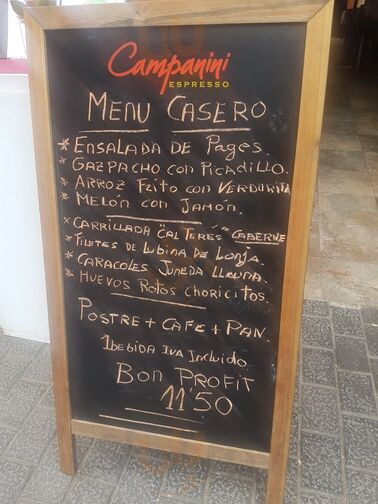 Campanini
ESPRESSO
MENU CASERO
* ENSALADA DE PAGES
* GAZPACHO CON PICADILLO.
* ARROZ FRITO CON VERDURITA
* MELÓN CON JAMÓN.
* CARRILLADA "CAL TERES" CABERNE
* FILETES DE LUBINA DE LONJA.
* CARACOLES JUNEDA LLEIDA.
* HUEVOS ROTOS CHORICITOS.
POSTRE + CAFE + PAN.
1 BEBIDA IVA INCLUIDO.
BON PROFIT
11'50